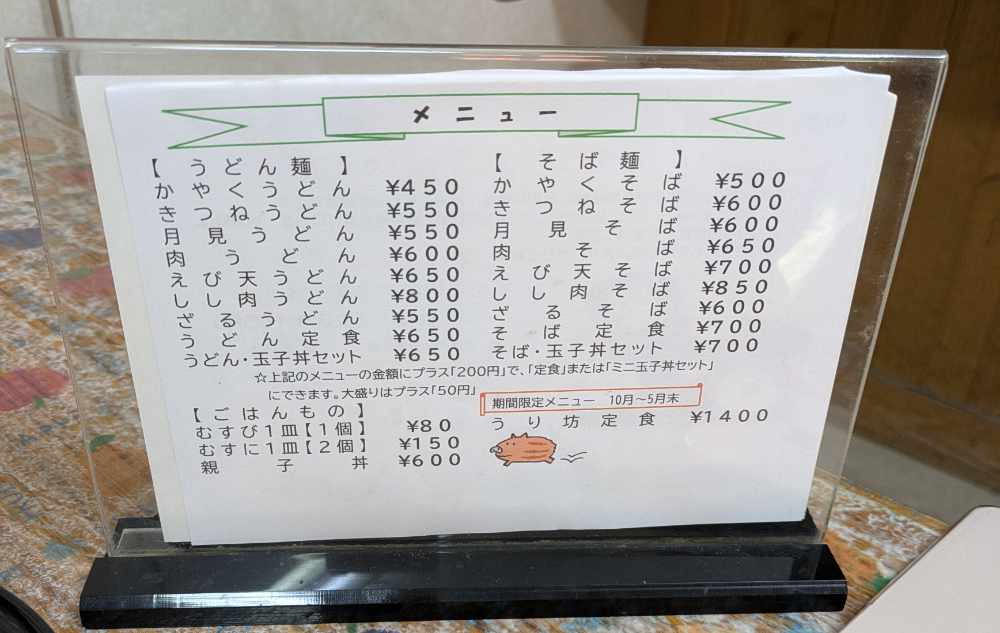 メニュー
【うどん麺】
かやくうどん ¥450
きつねうどん ¥550
月見うどん ¥550
肉うどん ¥600
えび天うどん ¥650
しし肉うどん ¥800
ざるうどん ¥550
うどん定食 ¥650
うどん・玉子丼セット ¥650
【そば麺】
かやくそば ¥500
きつねそば ¥600
月見そば ¥600
肉そば ¥650
えび天そば ¥700
しし肉そば ¥850
ざるそば ¥600
そば定食 ¥700
そば・玉子丼セット ¥700
☆上記のメニューの金額にプラス「200円」で、「定食」または「ミニ玉子丼セット」
にできます。大盛りはプラス「50円」
【ごはんもの】
むすび1皿【1個】 ¥80
むすに1皿【2個】 ¥150
親子丼 ¥600
期間限定メニュー 10月～5月末
うり坊定食 ¥1400